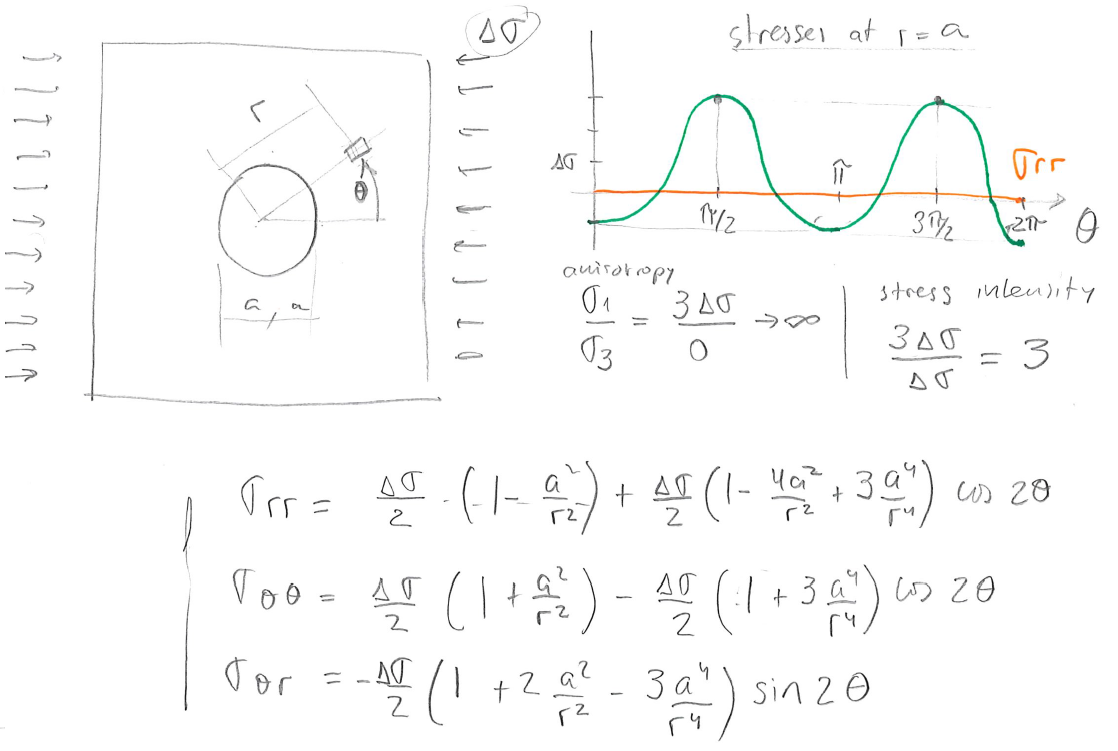 Δσ
stresses at r = a
r
θ
a, a
Δσ
π/2
π
3π/2
2π
θ
σrr
anisotropy
σ1/σ3 = 3Δσ/0 → ∞
stress intensity
3Δσ/Δσ = 3
σrr = Δσ/2 · (1 - a²/r²) + Δσ/2 (1 - 4a²/r² + 3 a⁴/r⁴) cos 2θ
σθθ = Δσ/2 (1 + a²/r²) - Δσ/2 (1 + 3 a⁴/r⁴) cos 2θ
σθr = -Δσ/2 (1 + 2 a²/r² - 3a⁴/r⁴) sin 2θ